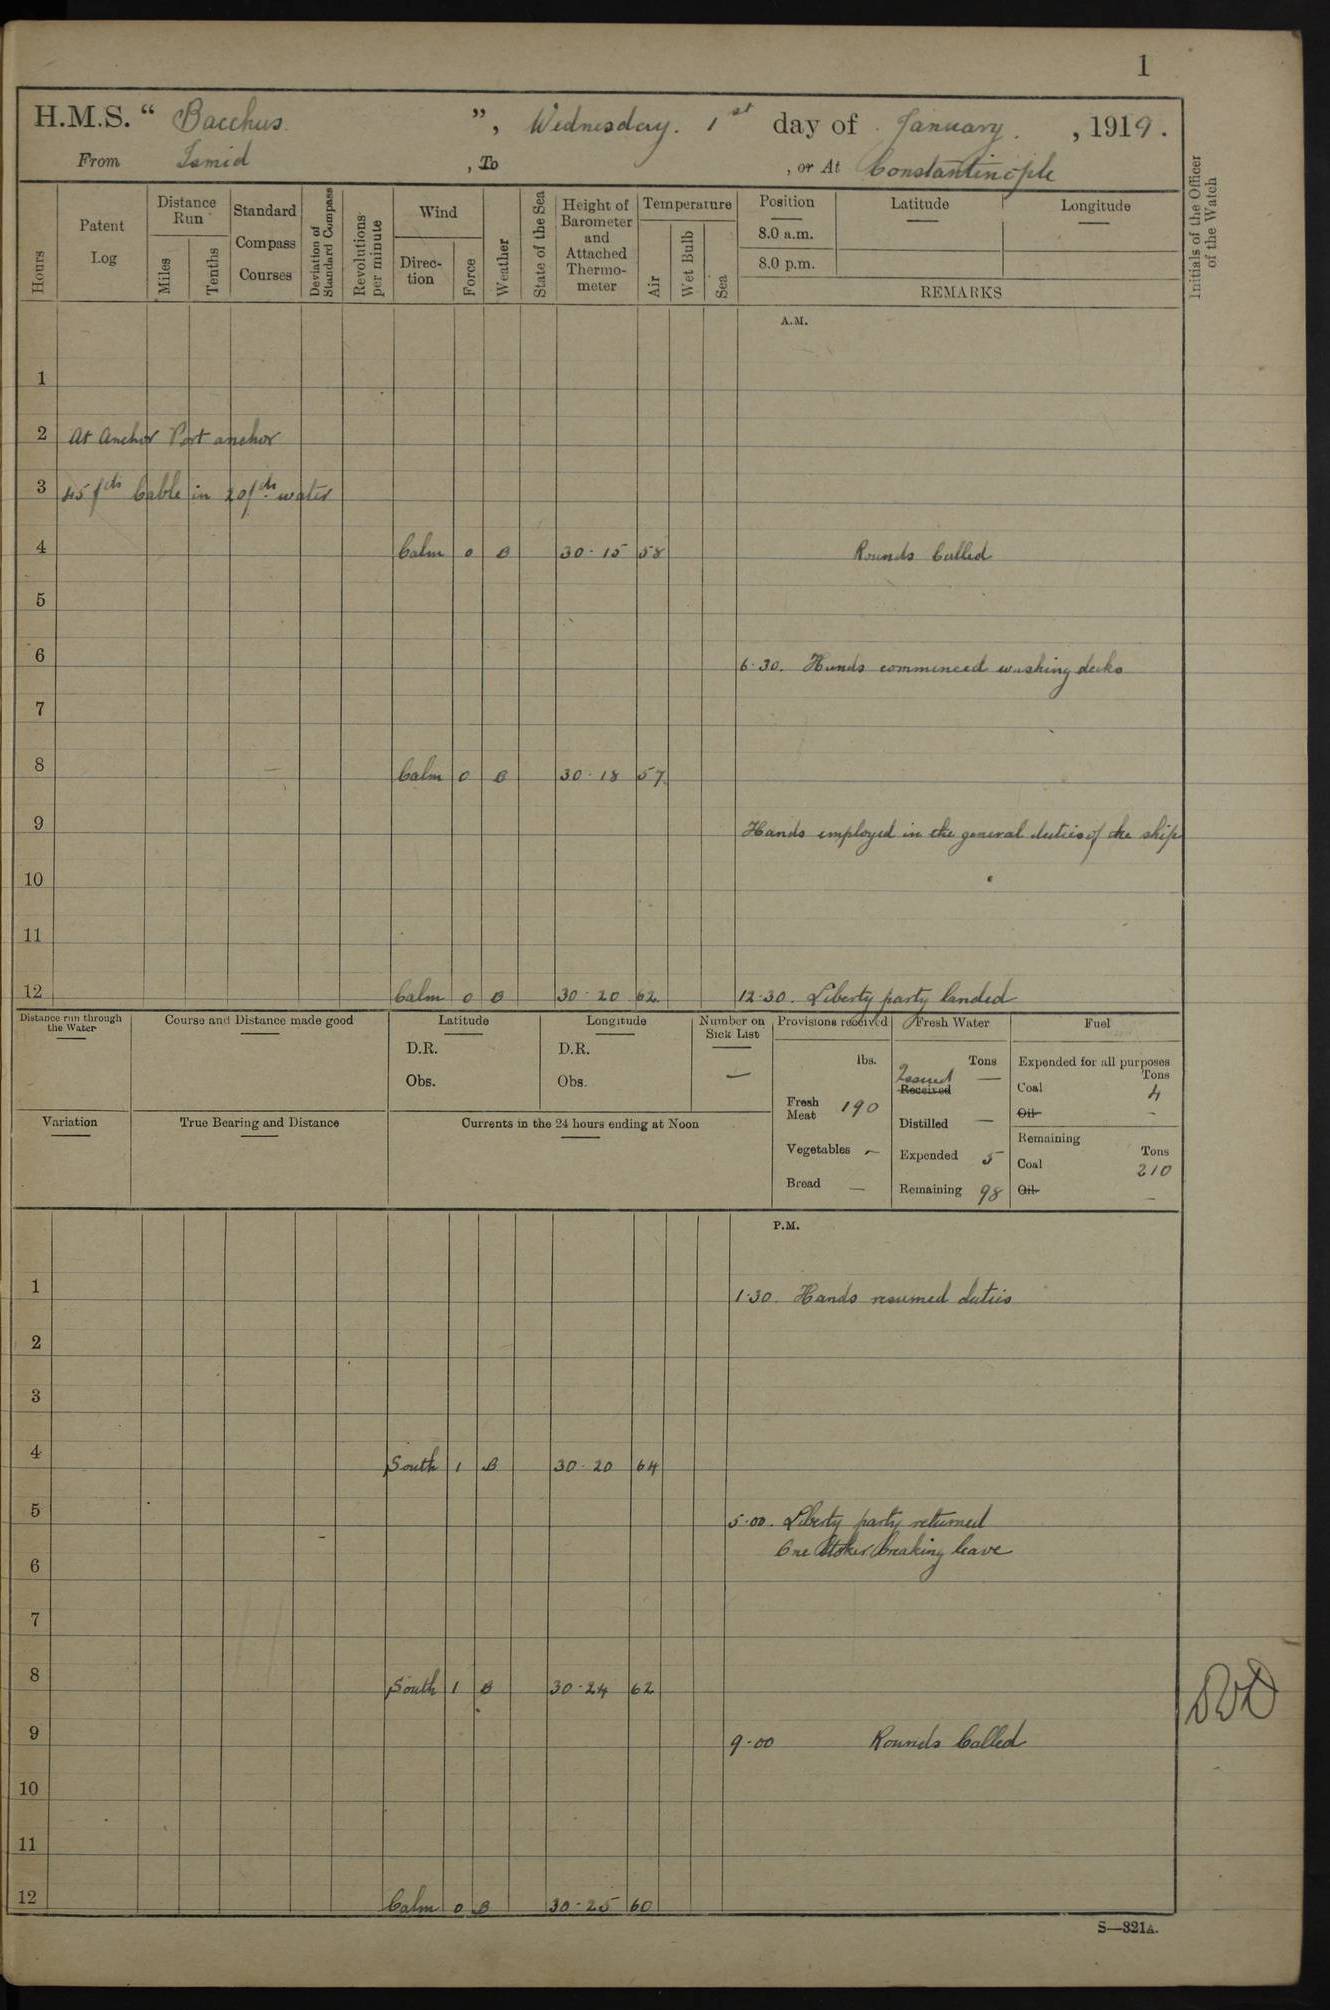 1
H.M.S. “ Bacchus ”, Wednesday. 1st day of January, 1919.
From Ismid , To , or At Constantinople
Hours
Patent Log
Distance Run
Miles
Tenths
Standard Compass Courses
Deviation of Standard Compass
Revolutions per minute
Wind
Direc-tion
Force
Weather
State of the Sea
Height of Barometer and Attached Thermo-meter
Temperature
Air
Wet Bulb
Sea
Position
8.0 a.m.
8.0 p.m.
Latitude
Longitude
REMARKS
Initials of the Officer of the Watch
A.M.
1
2 At Anchor Port anchor
3 45 fths Cable in 20 fth water
4 Calm 0 B 30·15 58 Rounds Called
5
6 6·30. Hands commenced washing decks
7
8 Calm 0 B 30·18 57
9 Hands employed in the general duties of the ship
10
11
12 Calm 0 B 30·20 62 12·30. Liberty party landed
Distance run through the Water
Course and Distance made good
Latitude
D.R.
Obs.
Longitude
D.R.
Obs.
Number on Sick List
—
Variation
True Bearing and Distance
Currents in the 24 hours ending at Noon
Provisions received
lbs.
Fresh Meat 190
Vegetables —
Bread —
Fresh Water
Tons
Issued —
Received
Distilled —
Expended 5
Remaining 98
Fuel
Expended for all purposes
Tons
Coal 4
Oil -
Remaining
Tons
Coal 210
Oil -
P.M.
1 1·30. Hands resumed duties
2
3
4 South 1 B 30·20 64
5 5·00. Liberty party returned
One Stoker breaking leave
6
7
8 South 1 B 30·24 62
9 9·00 Rounds Called
10
11
12 Calm 0 B 30·25 60
S—321A.